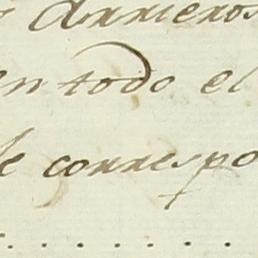 Arrieros
en todo el
de correspo
. . . . . . . .